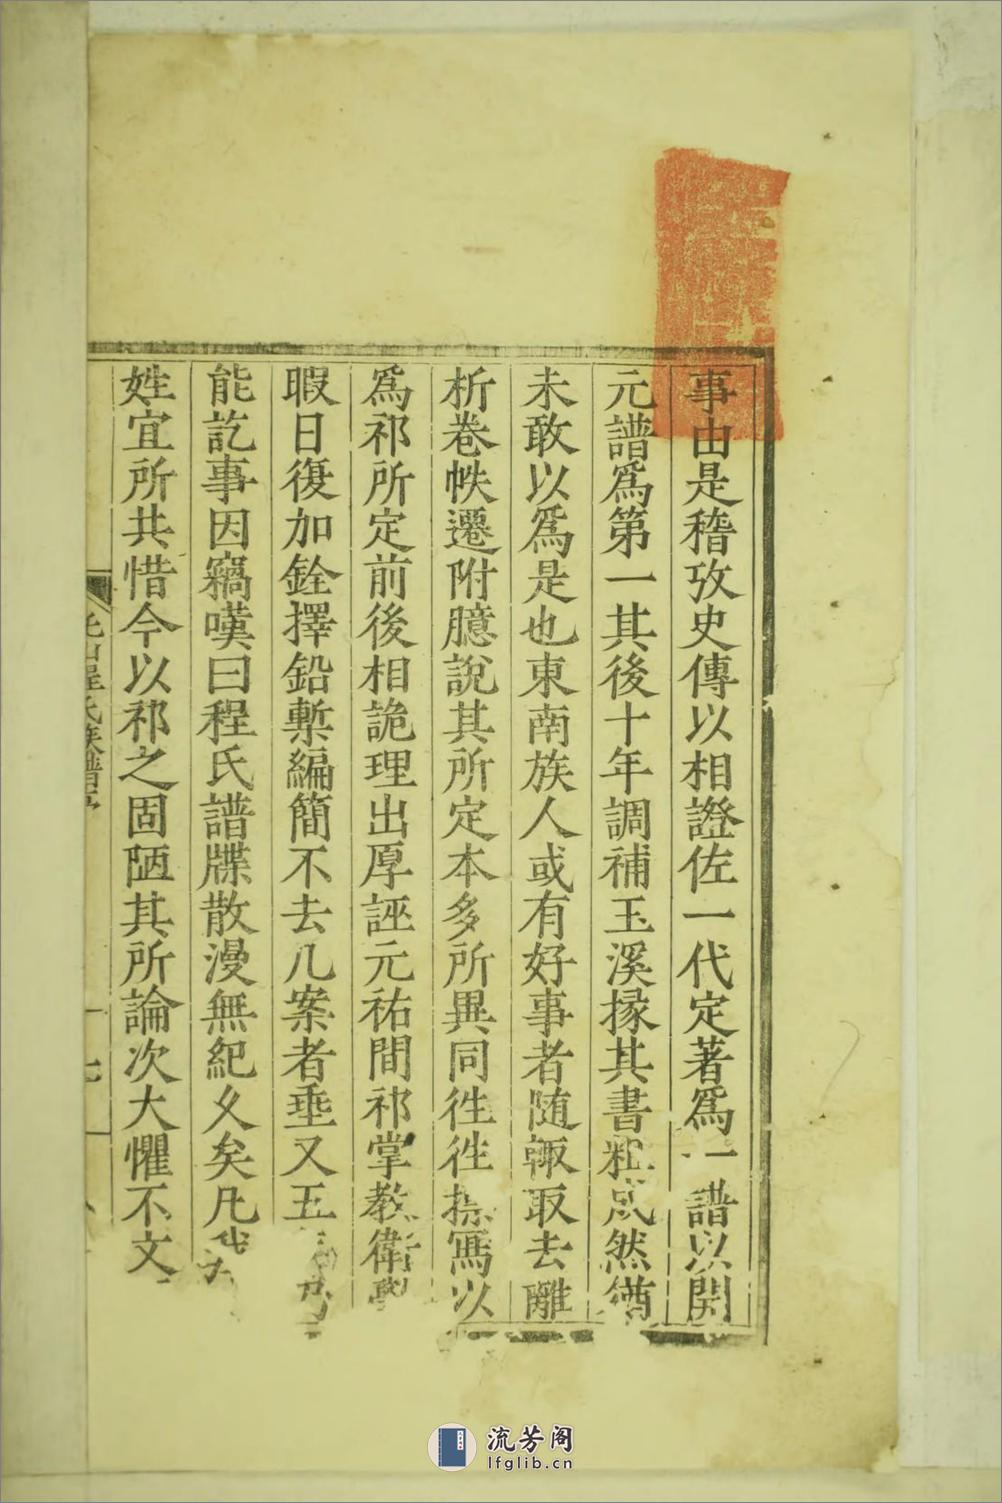 事由是稽攷史傳以相證佐一代定著爲一譜以開
元譜爲第一其後十年調補玉溪掾其書粗成然猶
未敢以爲是也東南族人或有好事者随輙取去離
析卷帙遷附臆說其所定本多所異同徃徃揔寫以
爲祁所定前後相詭理出厚誣元祐間祁掌教衛
暇日復加銓擇鉛槧編簡不去几案者垂又五
能訖事因竊嘆曰程氏譜牒散漫無紀久矣凡我
姓宜所共惜今以祁之固陋其所論次大懼不文
程氏族譜序
流芳阁
lfglib.cn